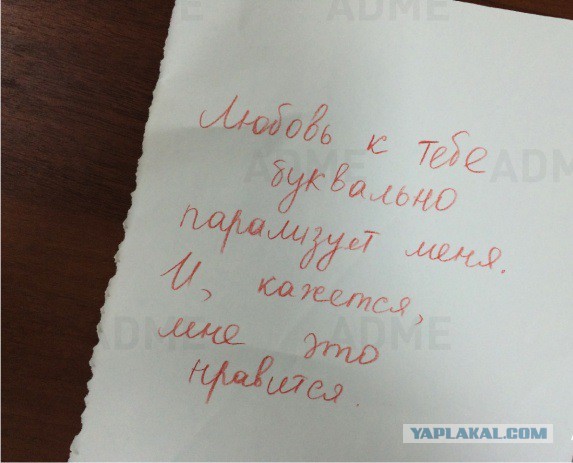 ADME
Любовь к тебе
ADME
ADME
буквально
парализует меня.
И, кажется,
ADME
ADME
мне это
нравится.
YAPLAKAL.COM